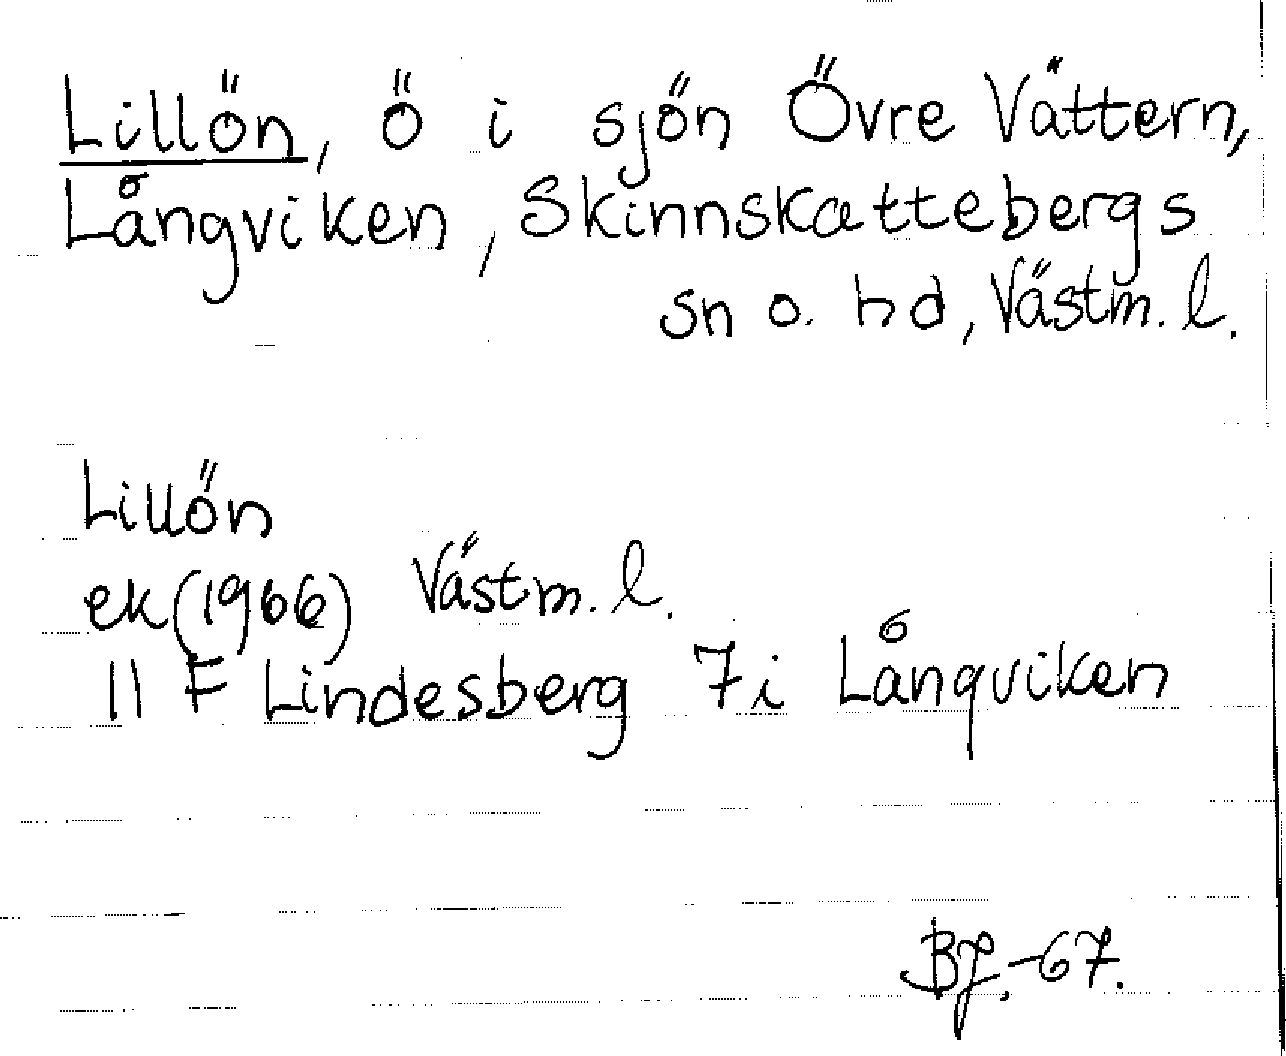 Lillön, ö i sjön Övre Vättern,
Långviken, Skinnskattebergs
sn o. hd, Västm. l.
Lillön
ek (1966) Västm. l.
11 F Lindesberg 7 i Långviken
BJ.-67.